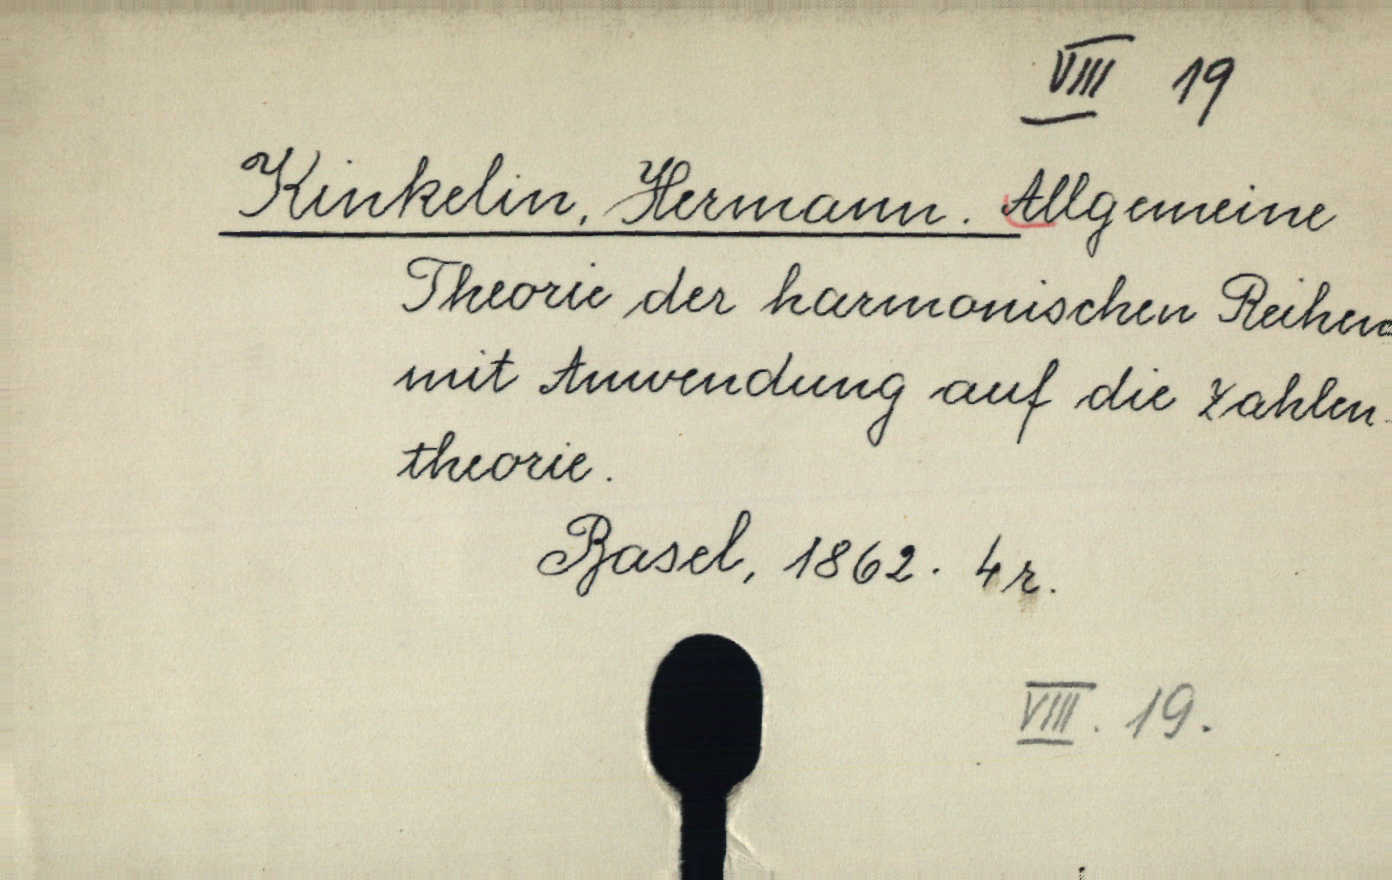 VIII 19
Kinkelin, Hermann. Allgemeine
Theorie der harmonischen Reihen
mit Anwendung auf die Zahlen-
theorie.
Basel, 1862. 4r.
VIII. 19.